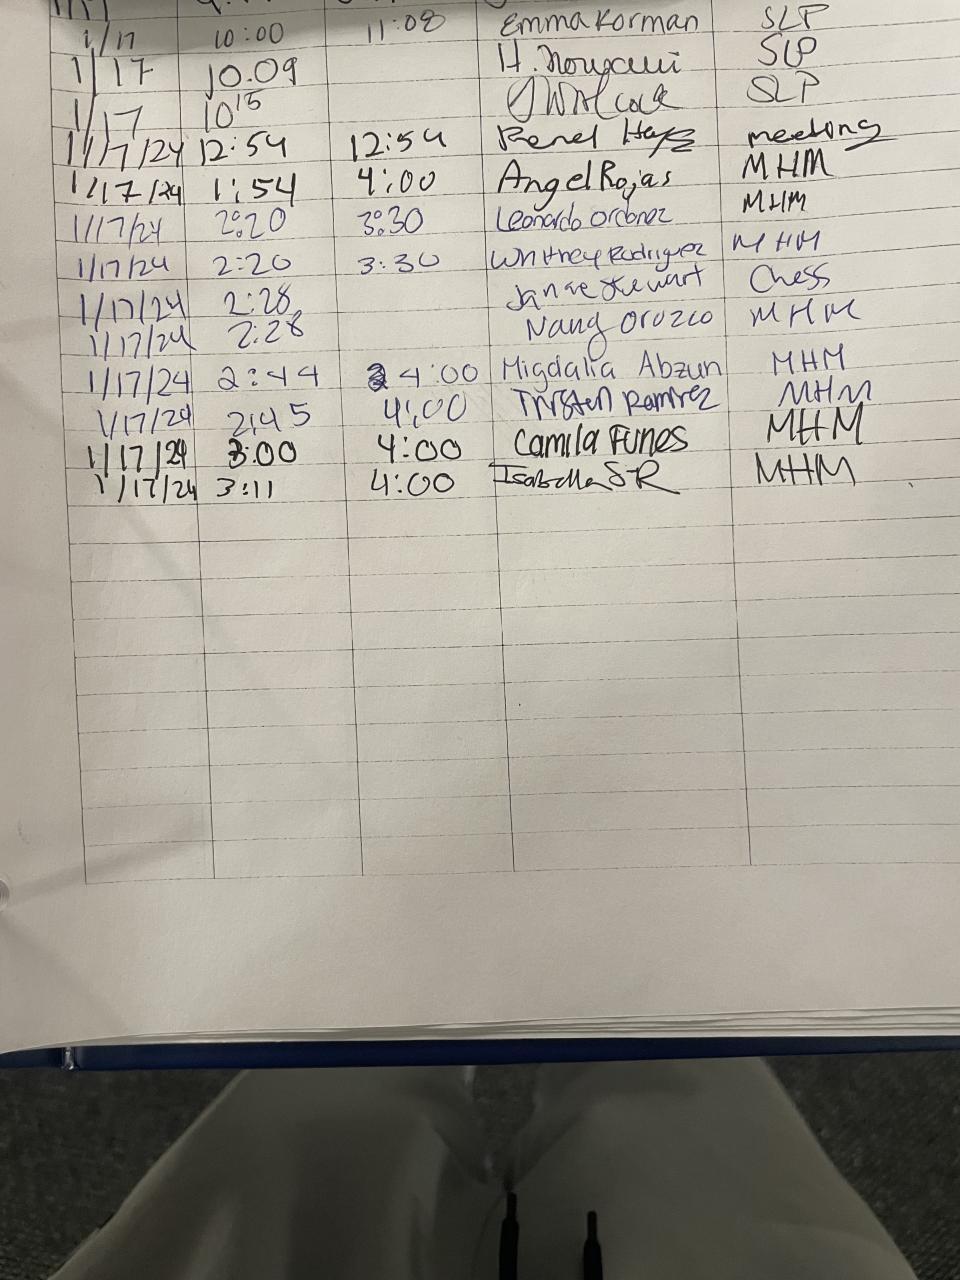 1/17 10:00 11:08 Emma Korman SLP
1/17 10.09 H. SLP
1/17 10 15 SLP
1/17/24 12:54 12:54 Renel Hayz meeting
1/17/24 1:54 4:00 Angel Rojas MHM
1/17/24 2:20 3:30 Leonardo Ordonez MHM
1/17/24 2:20 3:30 Whitney Rodriguez MHM
1/17/24 2:28 Stewart Chess
1/17/24 2:28 Nancy Orozco MHM
1/17/24 2:44 4:00 Migdalia Abzun MHM
1/17/24 2:45 4:00 Tristen Ramirez MHM
1/17/24 3:00 4:00 Camila Funes MHM
1/17/24 3:11 4:00 Isabella S-R MHM